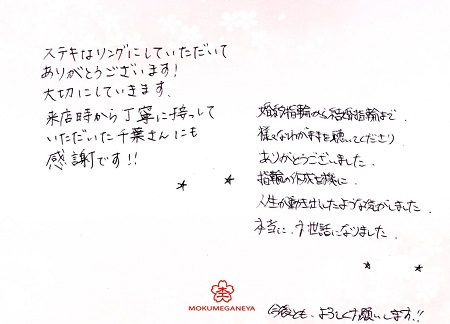 ステキなリングにしていただいて
ありがとうございます!
大切にしていきます、
来店時から丁寧に接して
いただいた千葉さんにも
感謝です!!
婚約指輪から結婚指輪まで、
様々なわがままを聴いてくださり
ありがとうございました。
指輪の作成を機に、
人生が動き出したような気がしました。
本当に、お世話になりました。
今後とも、よろしくお願いします。!!
MOKUMEGANEYA